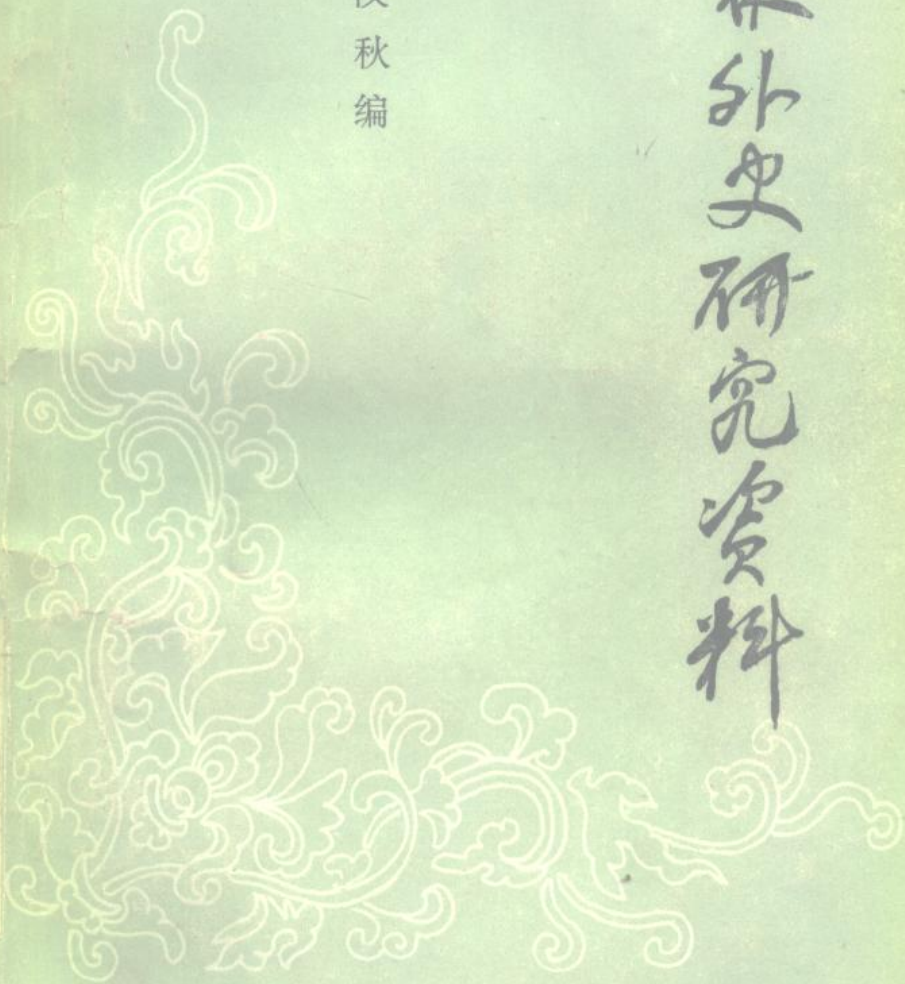 林外史研究资料
秋编